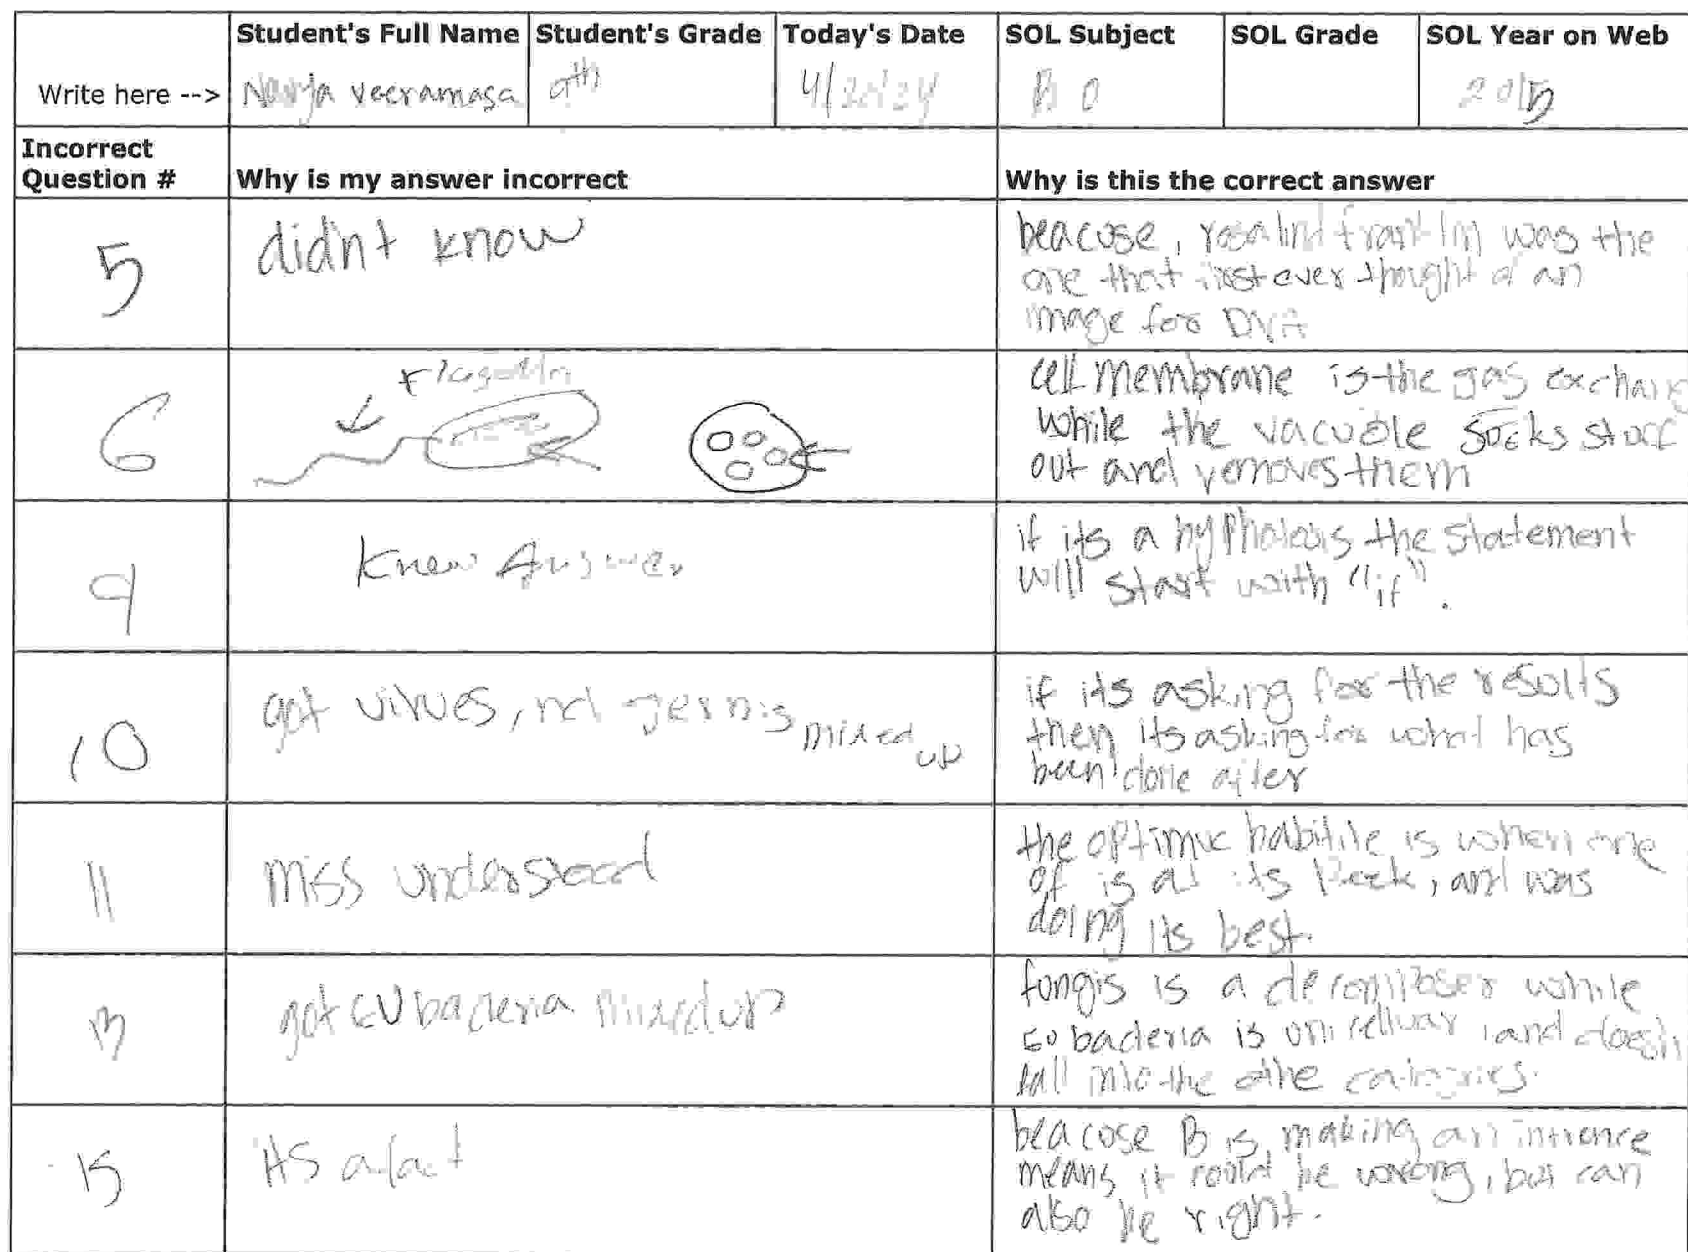 Student's Full Name Student's Grade Today's Date SOL Subject SOL Grade SOL Year on Web
Write here --> veeramasa 9th 4/ /24 2015
Incorrect
Question # Why is my answer incorrect Why is this the correct answer
5 didnt know
beacose, rosalind franklin was the
one that first ever thought of an
image for DNA
6
cell membrane is the gas exchang
while the vacuole sucks stuff
out and removes them
9 Knew Answer
if its a the statement
will start with "if".
10 got viruses, germs mixed up
if its asking for the results
then its asking for what has
been done after
11 miss understood
the is when one
of is at its Peek, and was
doing its best.
13 got EU bacteria mixed up
fungis is a decomposer while
Eubacteria is unicelluar and
fall into the othe
15 its a fact
beacose B is making an
means it could be wrong, but can
also be right.